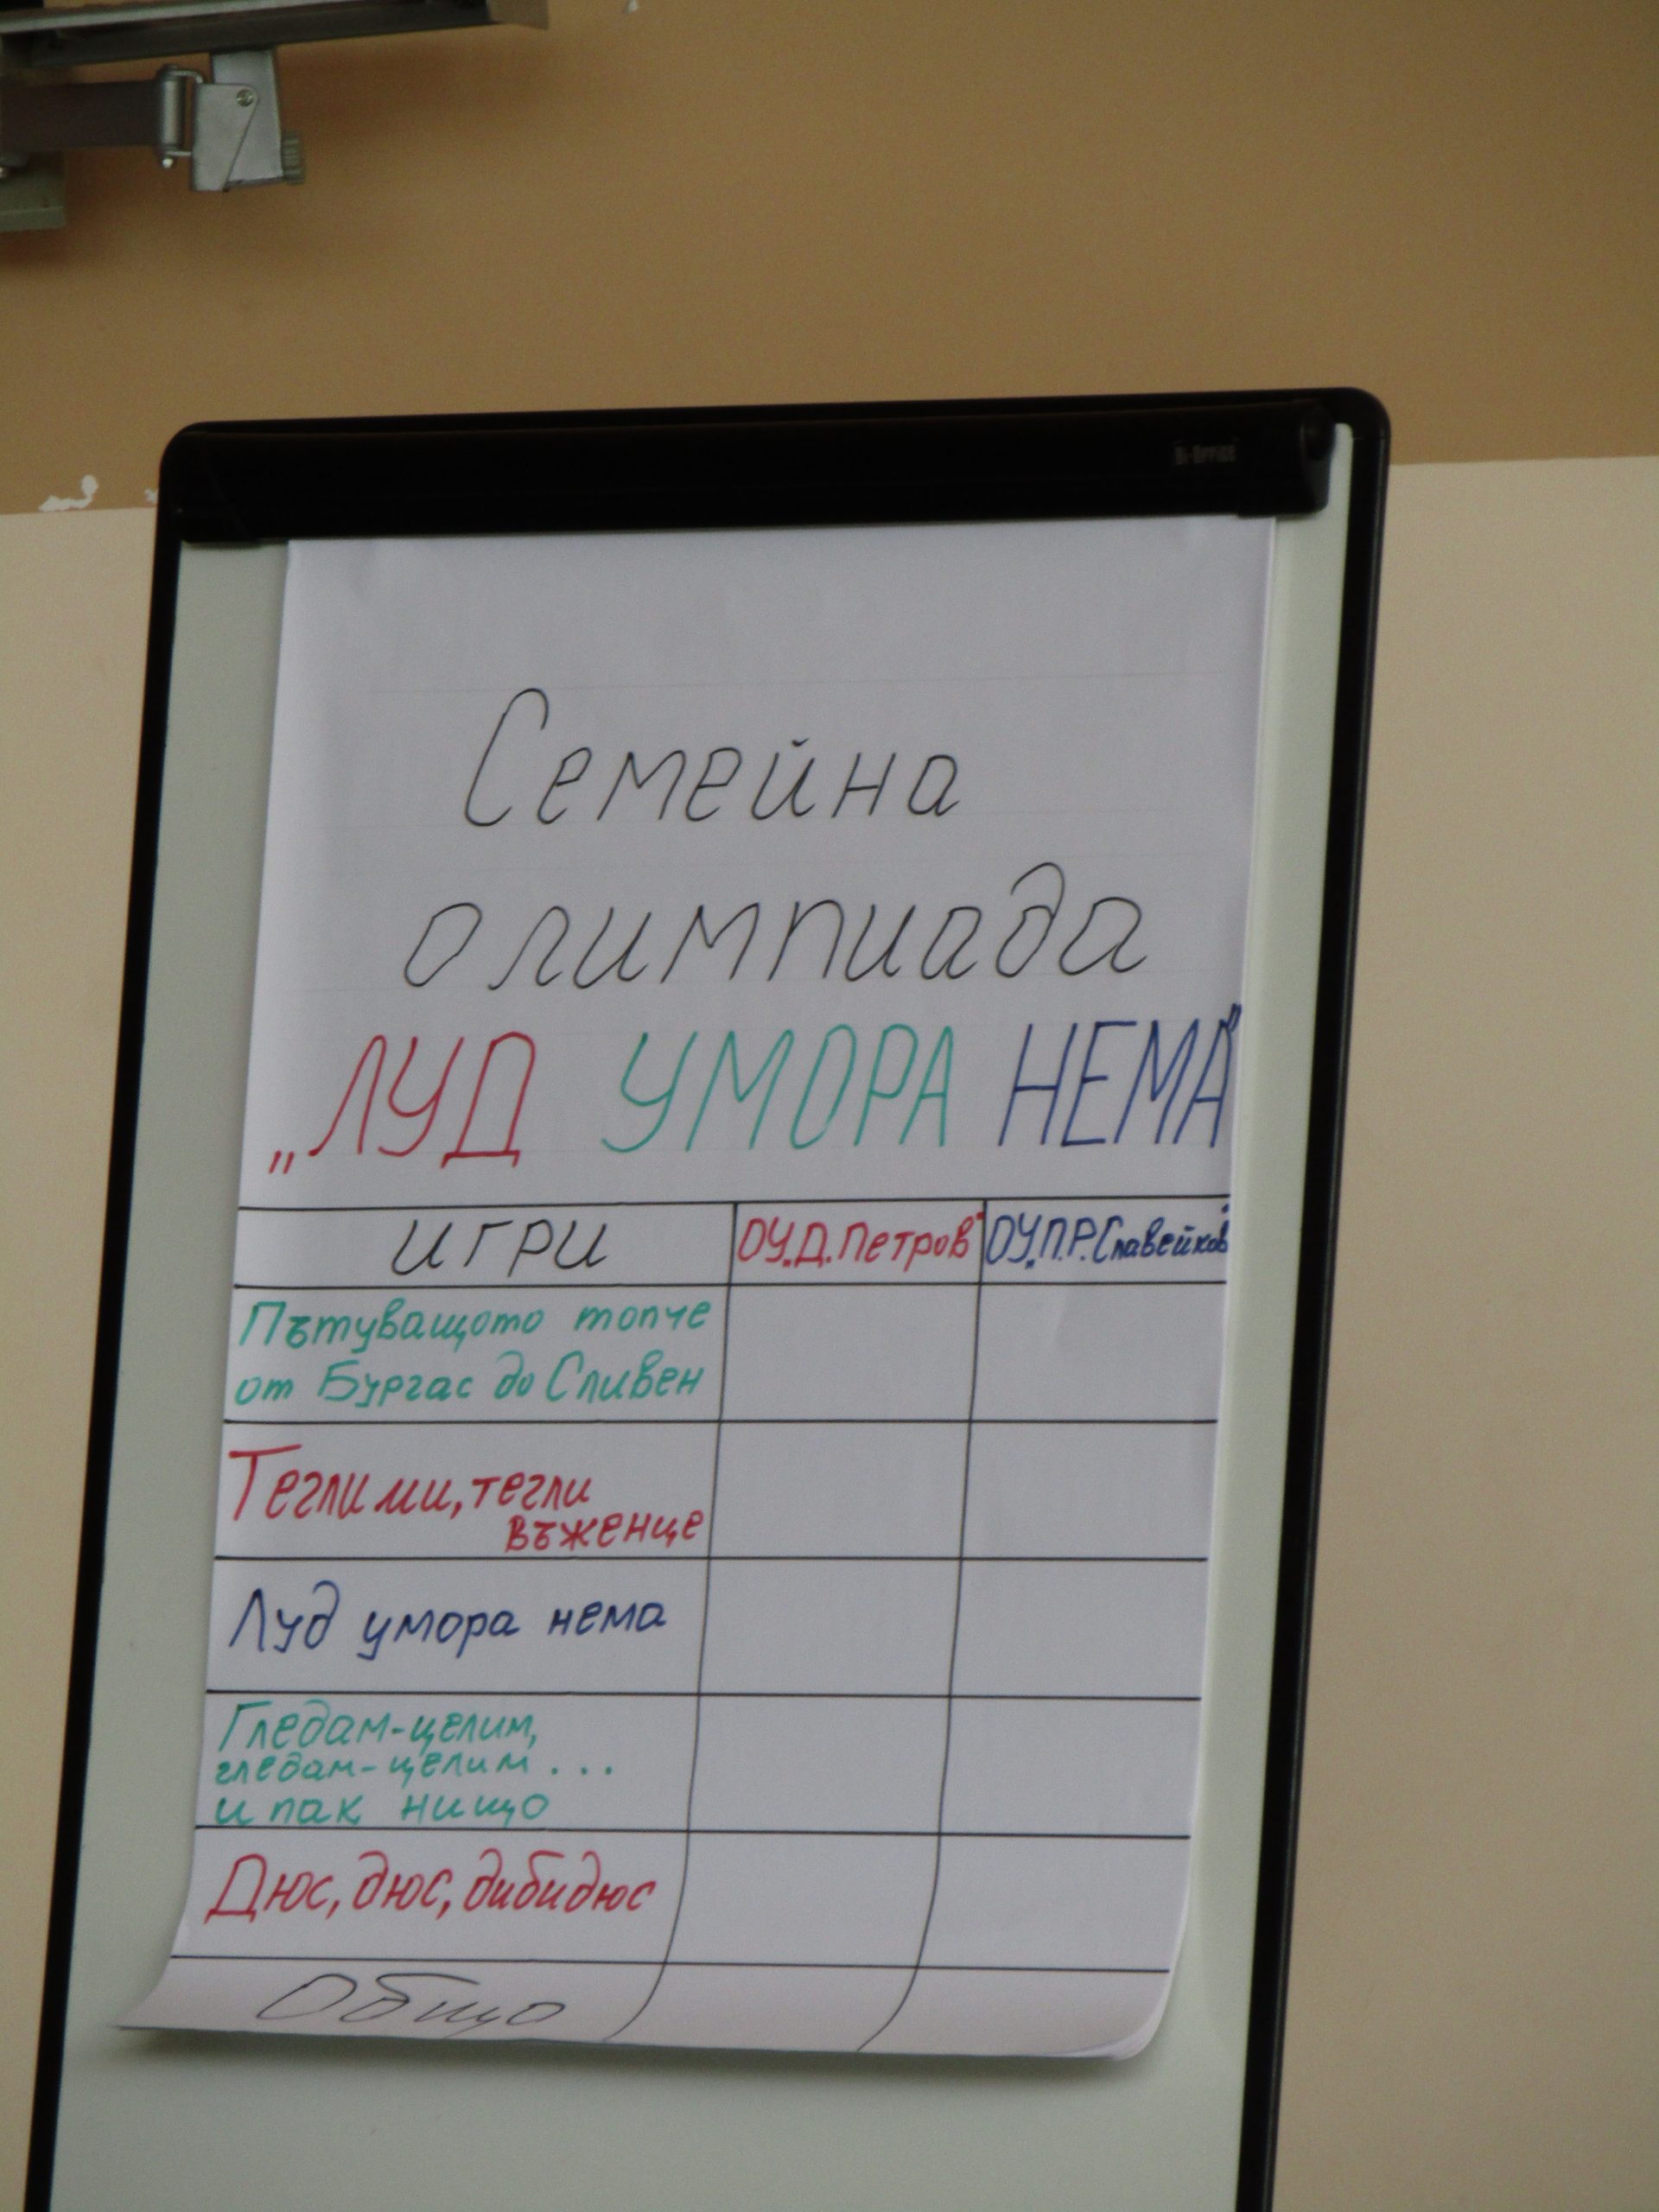 Bi-OFFICE
Семейна
олимпиада
„ЛУД УМОРА НЕМА"
ИГРИ
ОУ„Д.Петров"
ОУ„П.Р.Славейков"
Пътуващото топче
от Бургас до Сливен
Тегли ми, тегли
въженце
Луд умора нема
Гледам-целим,
гледам-целим...
и пак нищо
Дюс, дюс, дибидюс
Общо